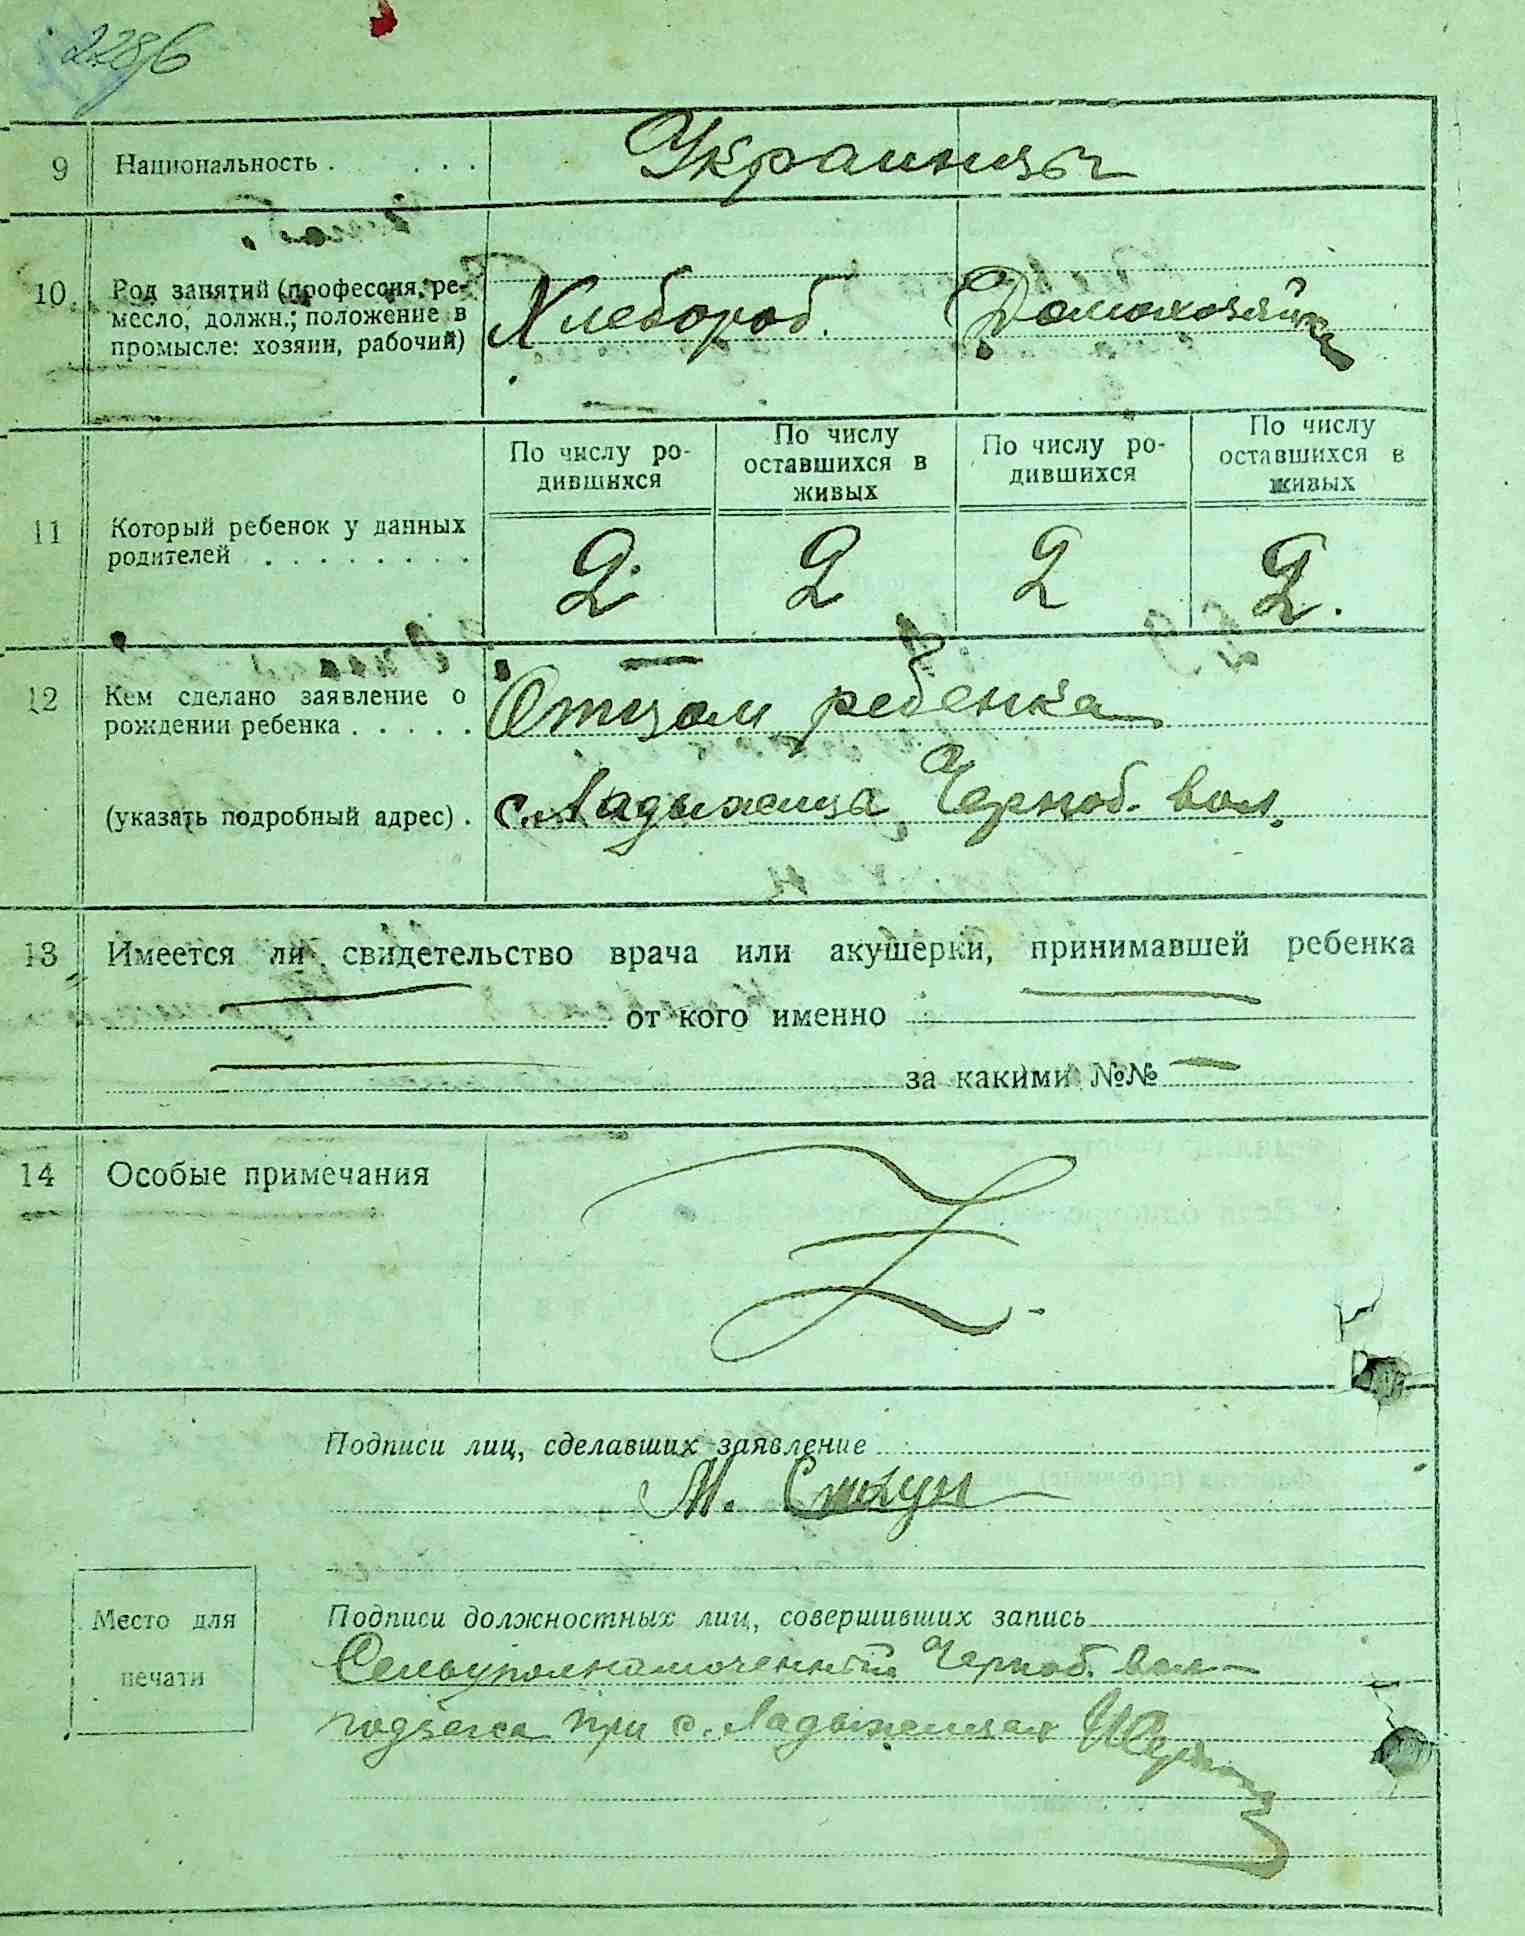 2286
9 Национальность . . . . Украинцы
10 Род занятий (профессия, ре-
месло, должн.; положение в
промысле: хозяин, рабочий) Хлебороб. Домохозяйка
По числу ро-
дившихся
По числу
оставшихся в
живых
По числу ро-
дившихся
По числу
оставшихся в
живых
11 Который ребенок у данных
родителей . . . . . . . . 2. 2 2 2.
12 Кем сделано заявление о
рождении ребенка . . . . . Отцом ребенка
(указать подробный адрес) . с. Ладыжица, Черноб. вол.
13 Имеется ли свидетельство врача или акушерки, принимавшей ребенка
от кого именно
за какими №№ —
14 Особые примечания
Подписи лиц, сделавших заявление
М.
Место для
печати
Подписи должностных лиц, совершивших запись
Сельуполномоченный Черноб. вол-
подзагса при с. Ладыжицах